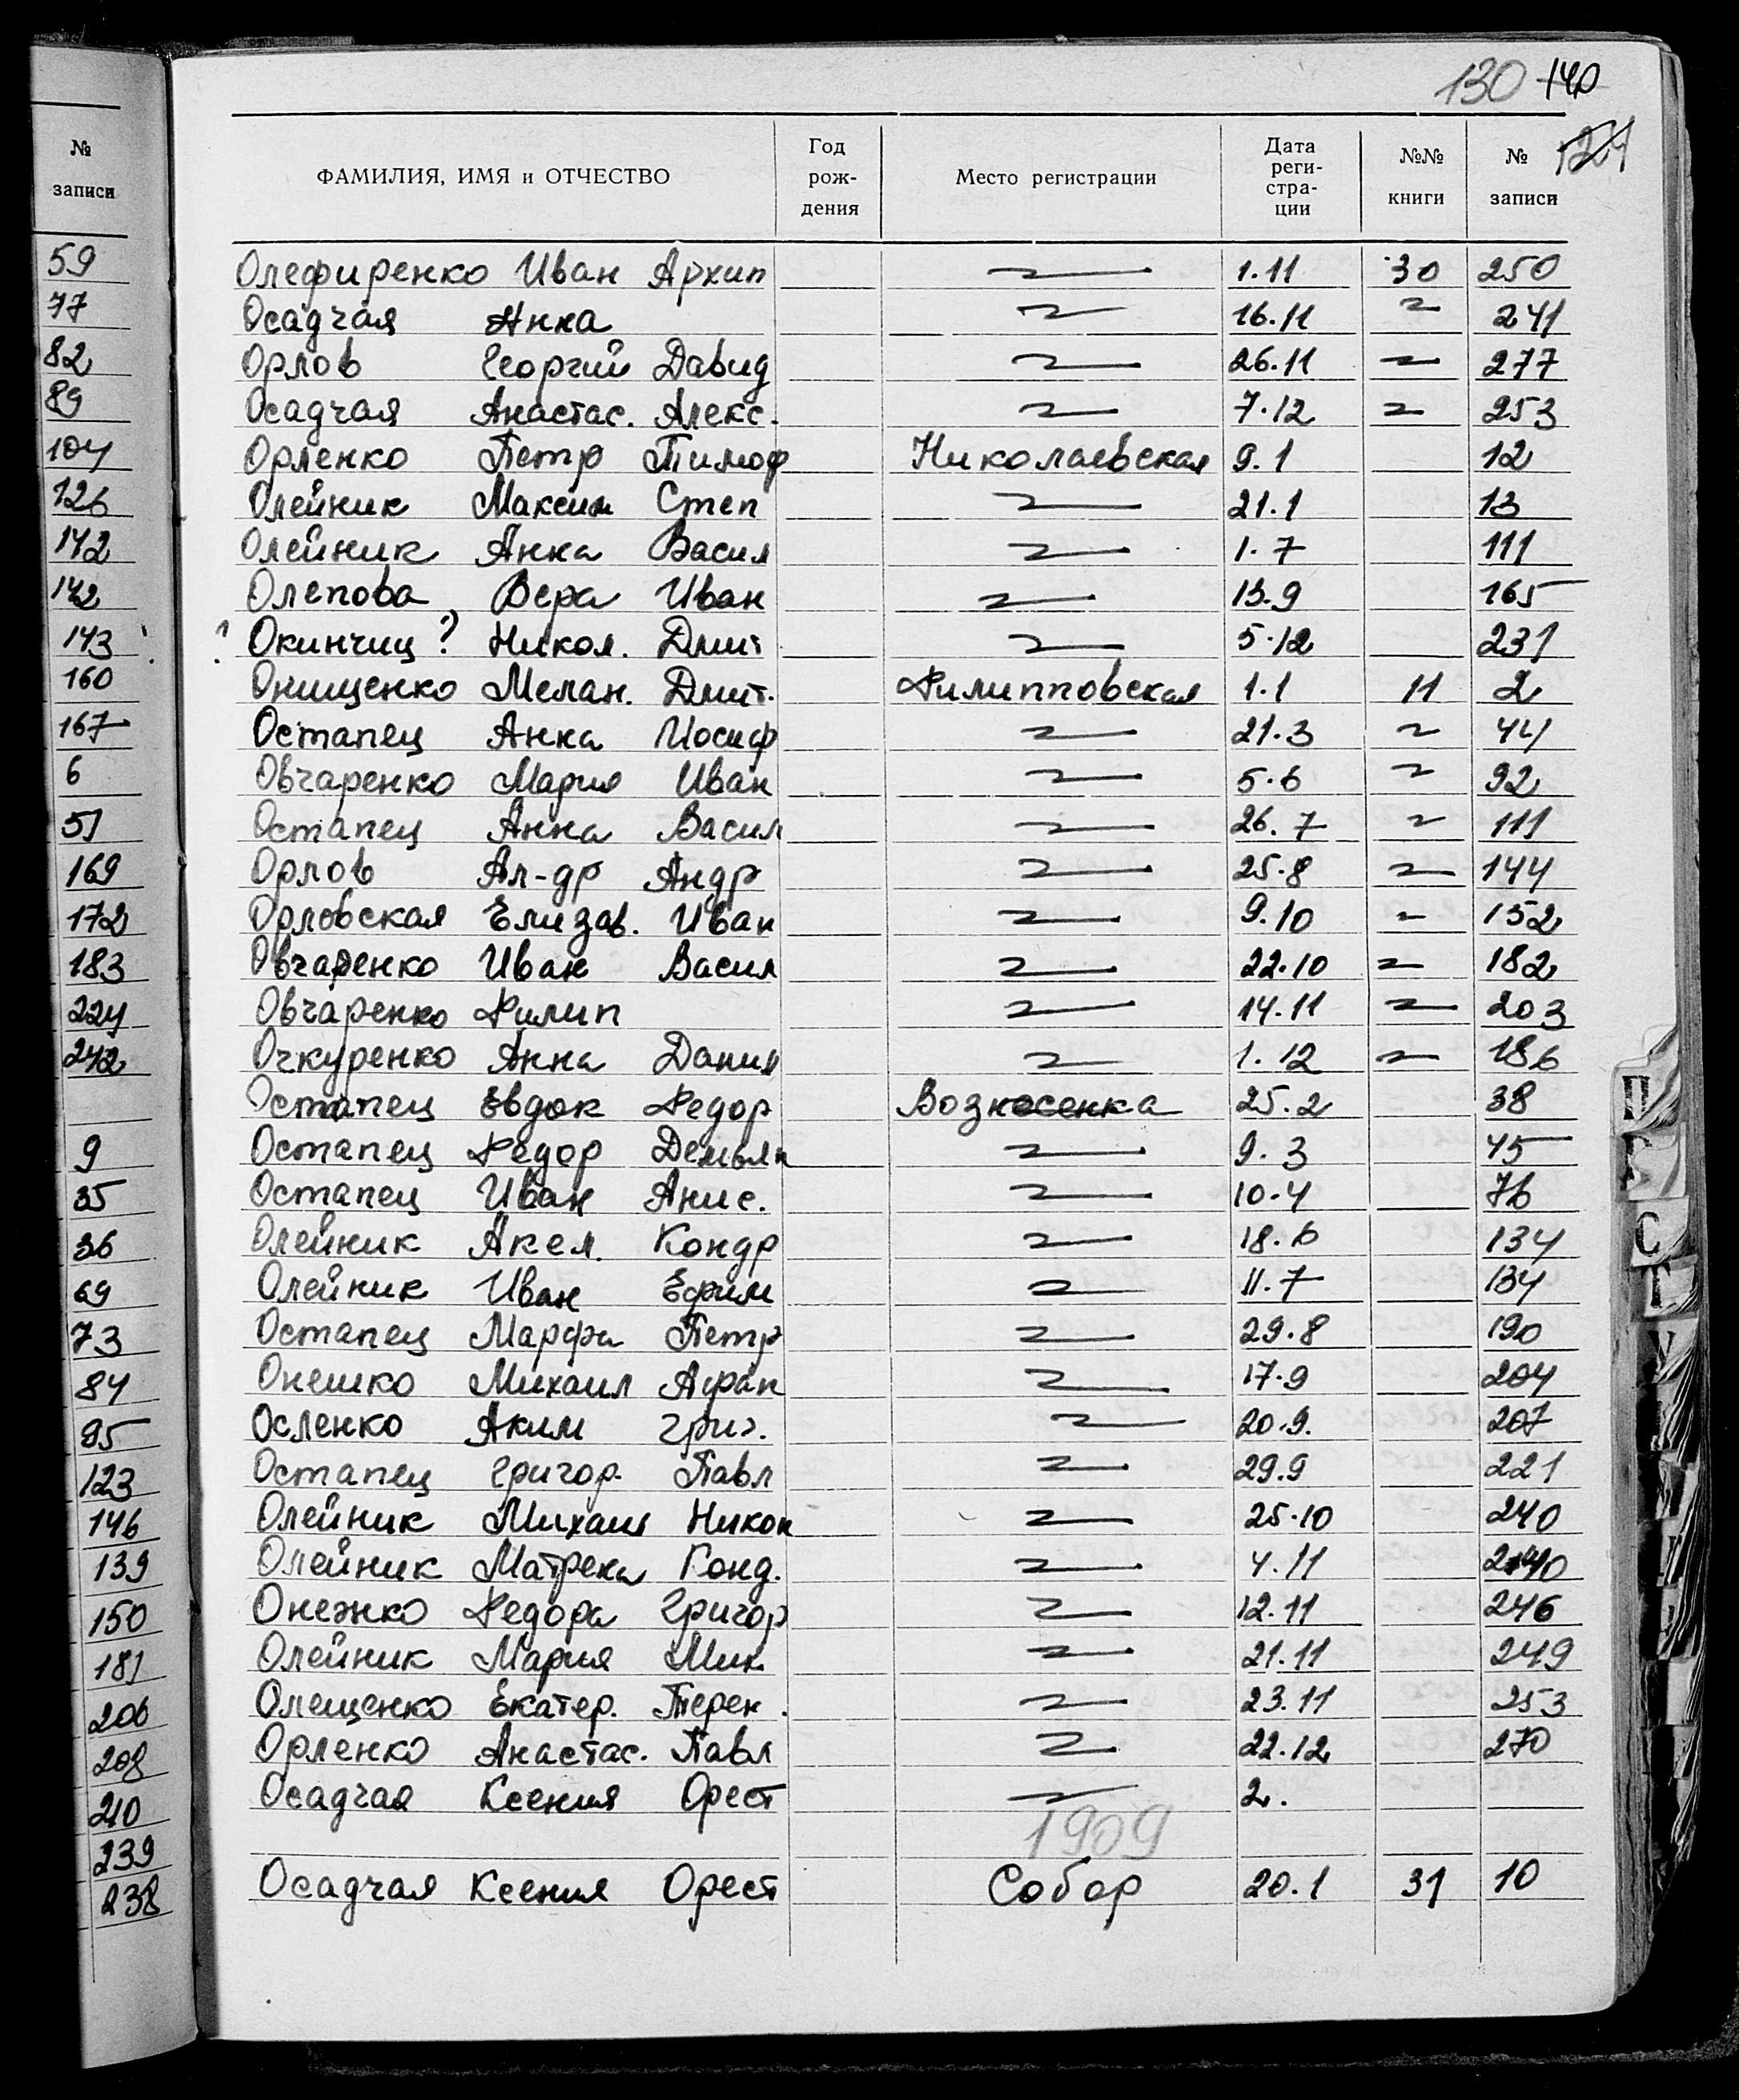 130 140
124
№ записи
59
77
82
89
104
126
142
142
143
160
167
6
51
169
172
183
224
242
9
35
36
69
73
84
95
123
146
139
150
181
206
208
210
239
238
ФАМИЛИЯ, ИМЯ и ОТЧЕСТВО Год рож-дения Место регистрации Дата реги-стра-ции №№ книги № записи
Олефиренко Иван Архип 1.11 30 250
Осадчая Анна 16.11 241
Орлов Георгий Давид 26.11 277
Осадчая Анастас. Алекс. 7.12 253
Орленко Петр Тимоф Николаевская 9.1 12
Олейник Максим Степ 21.1 13
Олейник Анна Васил 1.7 111
Олепова Вера Иван 13.9 165
? Окинчиц ? Никол. Дмит 5.12 231
Онищенко Мелан. Дмит. Филипповская 1.1 11 2
Остапец Анна Иосиф 21.3 44
Овчаренко Мария Иван 5.6 92
Остапец Анна Васил 26.7 111
Орлов Ал-др Андр 25.8 144
Орловская Елизав. Иван 9.10 152
Овчаренко Иван Васил 22.10 182
Овчаренко Филип 14.11 203
Очкуренко Анна Данил 1.12 186
Остапец Евдок Федор Вознесенка 25.2 38
Остапец Федор Демьян 9.3 45
Остапец Иван Анис. 10.4 76
Олейник Акел. Кондр 18.6 134
Олейник Иван Ефим 11.7 134
Остапец Марфа Петр 29.8 190
Онешко Михаил Афан 17.9 204
Осленко Аким Григ. 20.9. 207
Остапец Григор. Павл 29.9 221
Олейник Михаил Никон 25.10 240
Олейник Матрена Конд. 4.11 240
Онежко Федора Григор 12.11 246
Олейник Мария Мих 21.11 249
Олещенко Екатер. Терен. 23.11 253
Орленко Анастас. Павл 22.12 270
Осадчая Ксения Орест 2.
1909
Осадчая Ксения Орест Собор 20.1 31 10
П
С
Т
У